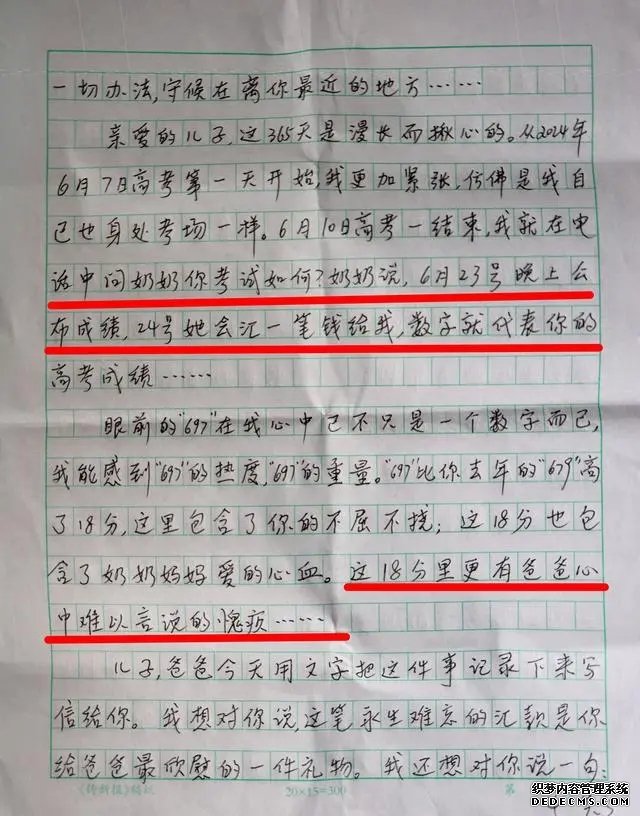 一切办法,守候在离你最近的地方……
亲爱的儿子,这365天是漫长而揪心的。从2024年
6月7日高考第一天开始,我更加紧张,仿佛是我自
己也身处考场一样。6月10日高考一结束,我就在电
话中问奶奶你考试如何?奶奶说,6月23号晚上公
布成绩,24号她会汇一笔钱给我,数字就代表你的
高考成绩……
眼前的"697"在我心中已不只是一个数字而已,
我能感到"697"的热度,"697"的重量。"697"比你去年的"679"高
了18分,这里包含了你的不屈不挠;这18分也包
含了奶奶妈妈爱的心血。这18分里更有爸爸心
中难以言说的愧疚……
儿子,爸爸今天用文字把这件事记录下来写
信给你。我想对你说,这笔永生难忘的汇款是你
给爸爸最欣慰的一件礼物。我还想对你说一句:
《锦新报》稿纸 20×15=300 第
织梦内容管理系统
DEDECMS.COM